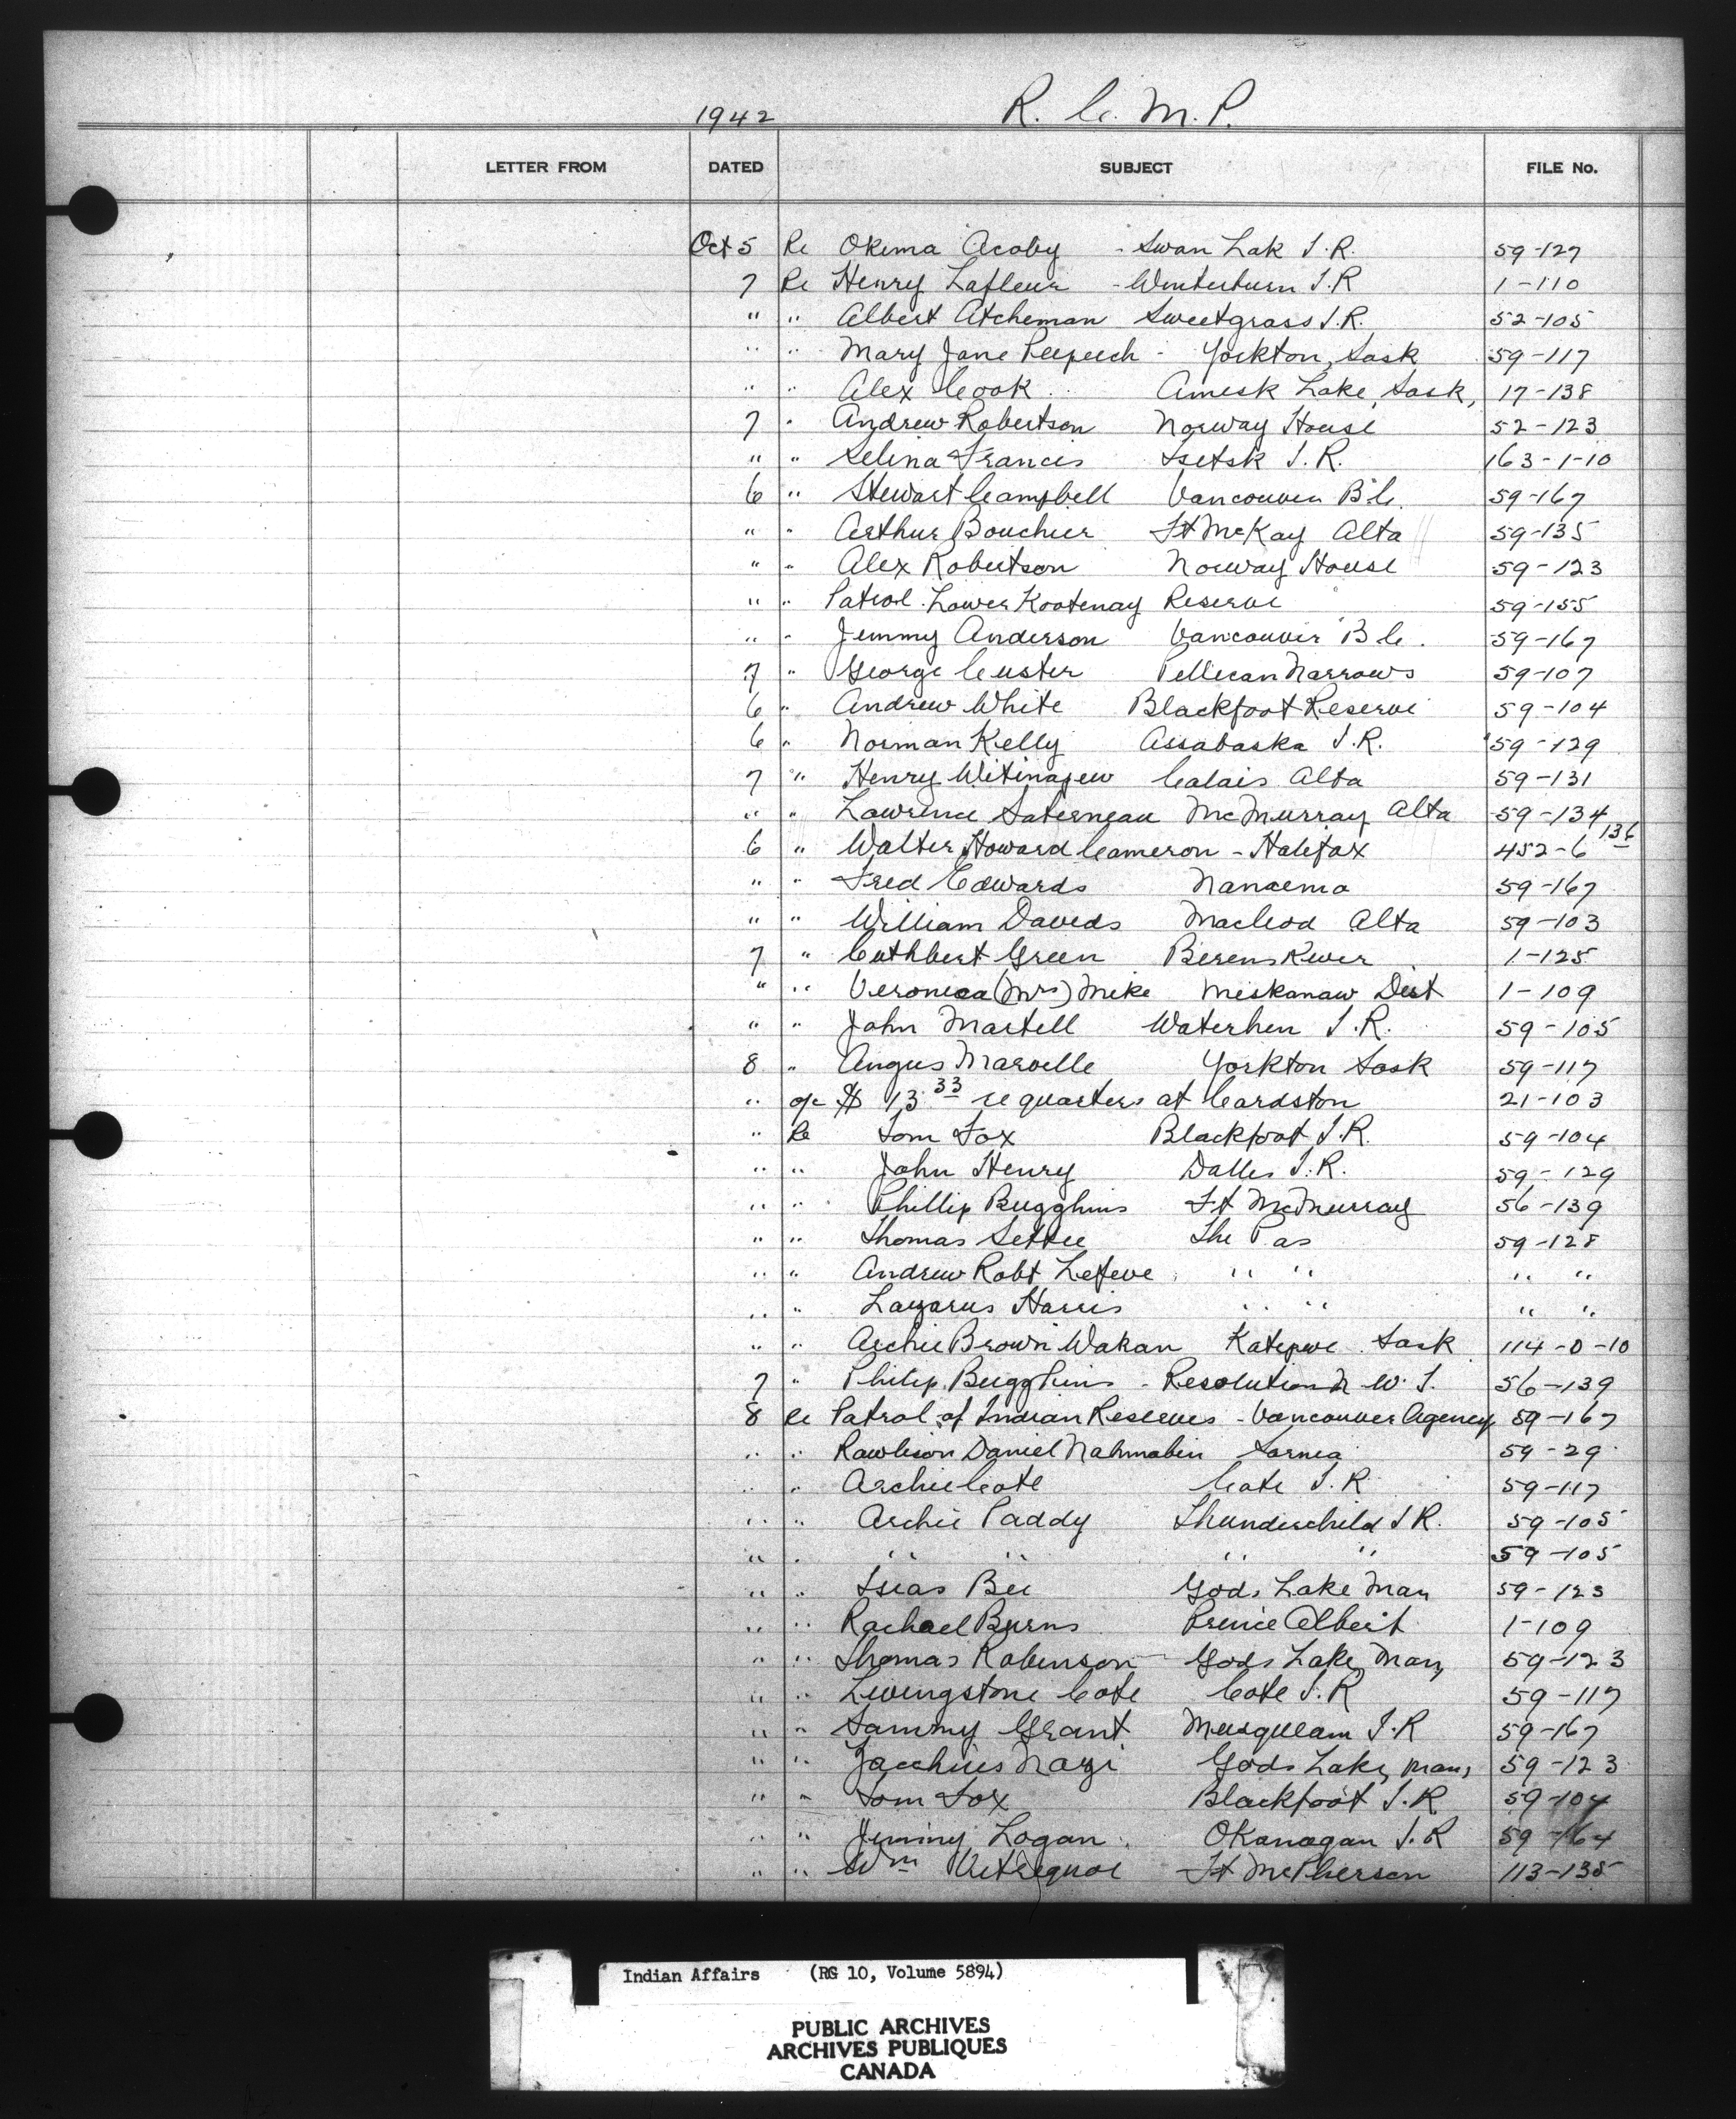 1942 R. C. M. P.
LETTER FROM DATED SUBJECT FILE No.
Oct 5 Re Okema Acoby - Swan Lak I.R. 59-127
7 Re Henry Lafleur - Winterburn I.R 1-110
" " Albert Atcheman Sweetgrass I.R. 52-105
" " Mary Jane Peepeech - Yorkton, Sask 59-117
" " Alex Cook Amisk Lake, Sask, 17-138
7 " Andrew Robertson Norway House 52-123
" " Selina Francis Isetsk I.R. 163-1-10
6 " Stewart Campbell Vancouver B.C. 59-167
" " Arthur Boucher Ft McKay Alta 59-135
" " Alex Robertson Norway House 59-123
" " Patrol Lower Kootenay Reserve 59-155
" " Jimmy Anderson Vancouver B C. 59-167
7 " George Custer Pellican Narrows 59-107
6 " Andrew White Blackfoot Reserve 59-104
6 " Norman Kelly Assabaska I.R. 59-129
7 " Henry Witinapew Calais Alta 59-131
" " Lawrence Saterneau McMurray Alta 59-134
6 " Walter Howard Cameron - Halifax 452-6 136
" " Fred Edwards Nanaemo 59-167
" " William Davids Macleod Alta 59-103
7 " Cuthbert Green Berens River 1-125
" " Veronica (Mrs) Mike Meskanaw Dist 1-109
" " John Martell Waterhen I.R. 59-105
8 " Angus Marvelle Yorkton Sask 59-117
" o/c $ 13.33 re quarters at Cardston 21-103
" Re Tom Fox Blackfoot I.R. 59-104
" " John Henry Dalles I.R. 59-129
" " Phillip Bugghins Ft McMurray 56-139
" " Thomas Settee The Pas 59-128
" " Andrew Robt Lefeve " " " "
" " Lazarus Harris " " " "
" " Archie Brown Wakan Katepwe Sask 114-0-10
7 " Philip Bugghins - Resolution N.W.T. 56-139
8 Re Patrol of Indian Reserves - Vancouver Agency 59-167
" " Rawlison Daniel Nahmabin Sarnia 59-29
" " Archie Cote Cote I.R 59-117
" " Archie Paddy Thunderchild I R. 59-105
" " " " " " 59-105
" " Isias Bee Gods Lake Man 59-123
" " Rachael Burns Prince Albert 1-109
" " Thomas Robinson Gods Lake, Man, 59-123
" " Livingstone Cote Cote I.R 59-117
" " Sammy Grant Musqueam I.R 59-167
" " Zacchius Nazi Gods Lake, Man, 59-123
" " Tom Fox Blackfoot I.R 59-104
" " Jimmy Logan Okanagan I.R 59-164
" " Wm Ft McPherson 113-135
Indian Affairs (RG 10, Volume 5894)
PUBLIC ARCHIVES
ARCHIVES PUBLIQUES
CANADA